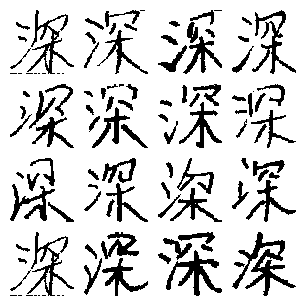 深深深深
深深深深
深深深深
深深深深